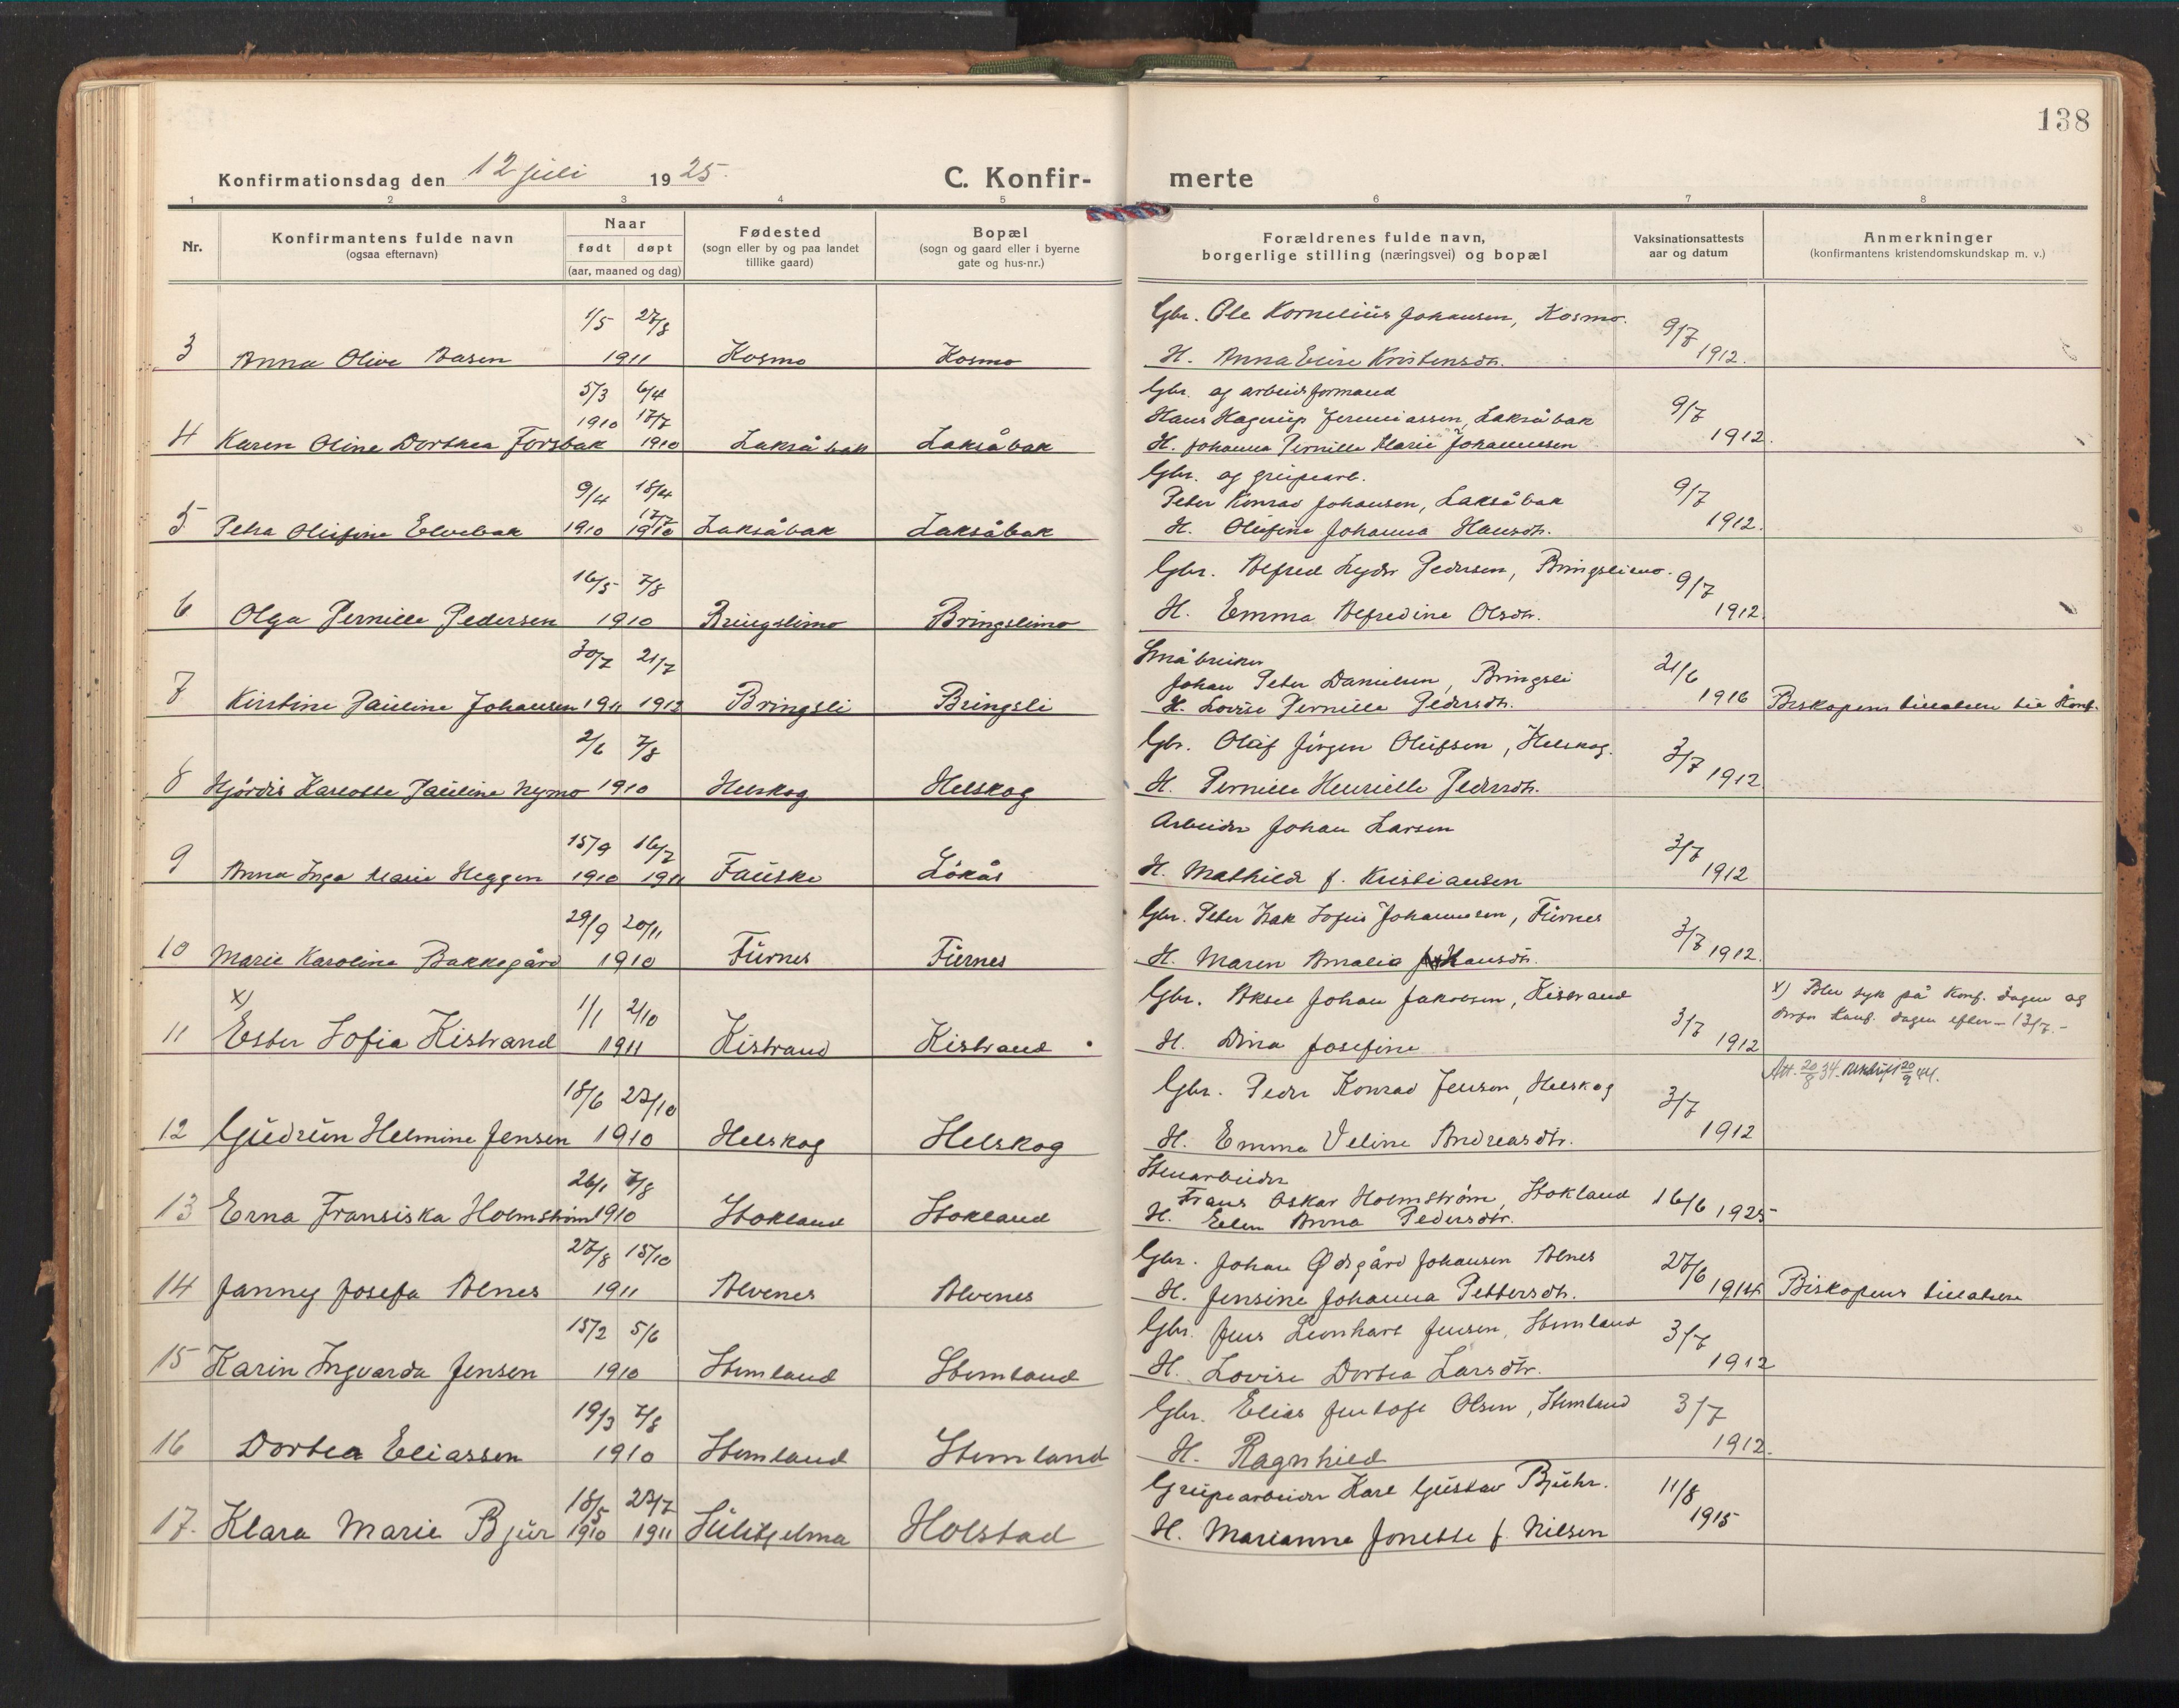 138
Konfirmationsdag den 12 juli 1925.
C. Konfir- merte
1 2 3 4 5 6 7 8
Nr.
Konfirmantens fulde navn
(ogsaa efternavn)
Naar
født døpt
(aar, maaned og dag)
Fødested
(sogn eller by og paa landet
tillike gaard)
Bopæl
(sogn og gaard eller i byerne
gate og hus-nr.)
Forældrenes fulde navn,
borgerlige stilling (næringsvei) og bopæl
Vaksinationsattests
aar og datum
Anmerkninger
(konfirmantens kristendomskundskap m. v.)
1/5 27/8 Gbr. Ole Kornelius Johansen, Kosmo. 9/7
3 Anna Olive Aasen 1911 Kosmo Kosmo H. Anna Elise Kristensdtr. 1912.
5/3 6/4 Gbr. og arbeidsformand
1910 17/7 Hans Hagerup Jeremiassen, Laksåbak 9/7
4 Karen Oline Dorthea Forsbak 1910 Laksåbak Laksåbak H. Johanna Pernille Marie Johannesen 1912.
Gbr. og grupearb.
9/4 18/4 Peter Konrad Johansen, Laksåbak 9/7
17/7
5 Petra Olufine Elvebak 1910 1910 Laksåbak Laksåbak H. Olufine Johanna Hansdtr. 1912.
16/5 7/8 Gbr. Alfred Lyder Pedersen, Bringslimo. 9/7
6 Olga Pernille Pedersen 1910 Bringslimo Bringslimo H. Emma Alfredine Olsdtr. 1912.
Småbruker
30/7 21/7 Johan Peter Danielsen, Bringsli 21/6
7 Kirstine Pauline Johansen 1911 1912 Bringsli Bringsli H. Lovise Pernille Pedersdtr. 1916 Biskopens tillatelse til Konf.
2/6 7/8 Gbr. Olaf Jörgen Olufsen, Helskog. 3/7
8 Hjördis Karlotte Pauline Nymo 1910 Helskog Helskog H. Pernille Henriette Pedersdtr. 1912
15/9 16/7 Arbeider Johan Larsen 3/7
9 Anna Inga Marie Heggen 1910 1911 Fauske Lökås H. Mathilde f. Kristiansen 1912
29/9 20/11 Gbr. Peter Isak Sofus Johannesen, Furnes 3/7
10 Marie Karoline Bakkegård 1910 Furnes Furnes H. Maren Amalia Hansdtr. 1912.
x) 1/1 2/10 Gbr. Aksel Johan Jakobsen, Kistrand 3/7 x) Blev syk på Konf. dagen og
derfor Konf. dagen efter - 13/7. -
11 Ester Sofia Kistrand 1911 Kistrand Kistrand H. Dina Josefine 1912
Att. 20/8 34. Utskrift 20/9 44.
18/6 27/10 Gbr. Peder Konrad Jensen, Helskog 3/7
12 Gudrun Helmine Jensen 1910 Helskog Helskog H. Emma Veline Andreasdtr. 1912
Stenarbeider
26/1 7/8 Frans Oskar Holmström, Stokland 16/6
13 Erna Fransiska Holmström 1910 Stokland Stokland H. Elen Anna Pedersdtr. 1925
27/8 15/10 Gbr. Johan Ødegård Johansen Alnes 27/6
14 Janny Josefa Alnes 1911 Alvenes Alvenes H. Jensine Johanna Pettersdtr. 1914 Biskopens tillatelse
15/2 5/6 Gbr. Jens Leonhart Jensen, Stemland 3/7
15 Karin Ingvarda Jensen 1910 Stemland Stemland H. Lovise Dortea Larsdtr. 1912
19/3 7/8 Gbr. Elias Jentoft Olsen, Stemland 3/7
16 Dortea Eliassen 1910 Stemland Stemland H. Ragnhild 1912.
18/5 27/7 Grupearbeider Karl Gustav Bjuhr. 11/8
17. Klara Marie Bjur 1910 1911 Sulitjelma Holstad H. Marianne Jonette f. Nilsen 1915